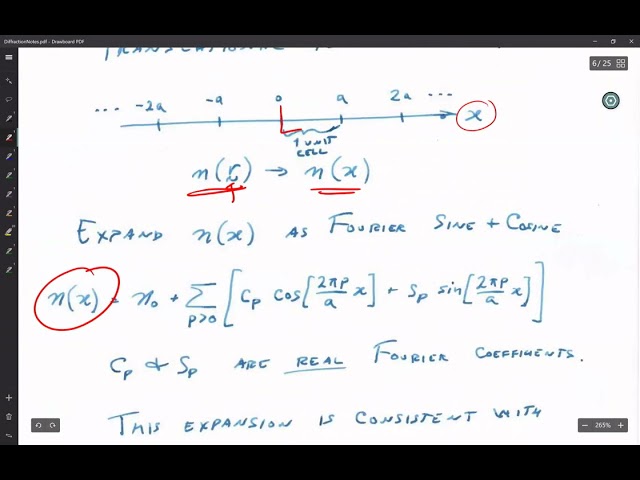 DiffractionNotes.pdf - Drawboard PDF
6 / 25
TRANSLATIONAL
... -2a -a 0 a 2a ... x
1 UNIT
CELL
n(r) → n(x)
EXPAND n(x) AS FOURIER SINE + COSINE
n(x) = n₀ + ∑ p>0 [Cp cos[2πp/a x] + Sp sin[2πp/a x]]
Cp & Sp ARE REAL FOURIER COEFFIENTS.
THIS EXPANSION IS CONSISTENT WITH
265%